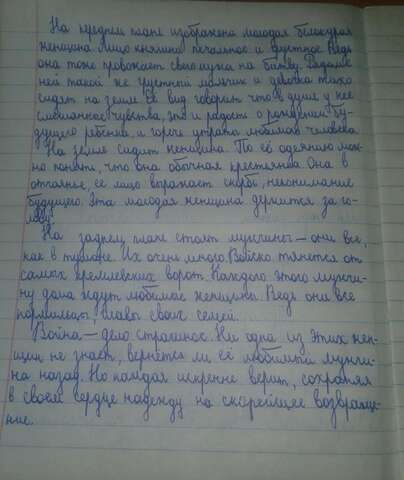 На среднем плане изображена молодая белокурая
женщина. Лицо княгини печальное и грустное. Ведь
она тоже провожает своего мужа на битву. Рядом с
ней такой же грустный мальчик и девочка тихо
сидят на земле. Её вид говорит, что в душе у неё
смешанное чувства, это и радость о рождении бу-
дущего ребёнка, и горечь утраты любимого человека.
На земле сидит женщина. По её одеянию мож-
но понять, что она обычная крестьянка. Она в
отчаянье, её лицо выражает скорбь, непонимание
будущего. Эта молодая женщина держится за го-
лову.
На заднем плане стоят мужчины – они все,
как в тумане. Их очень много. Войско тянется от
самых кремлевских ворот. Каждого этого мужчи-
ну дома ждут любимые женщины. Ведь они все
кормильцы, главы своих семей.
Война – дело страшное. Ни одна из этих жен-
щин не знает, вернётся ли её любимый мужчи-
на назад. Но каждая искренне верит, сохраняя
в своем сердце надежду на скорейшее возвраще-
ние.